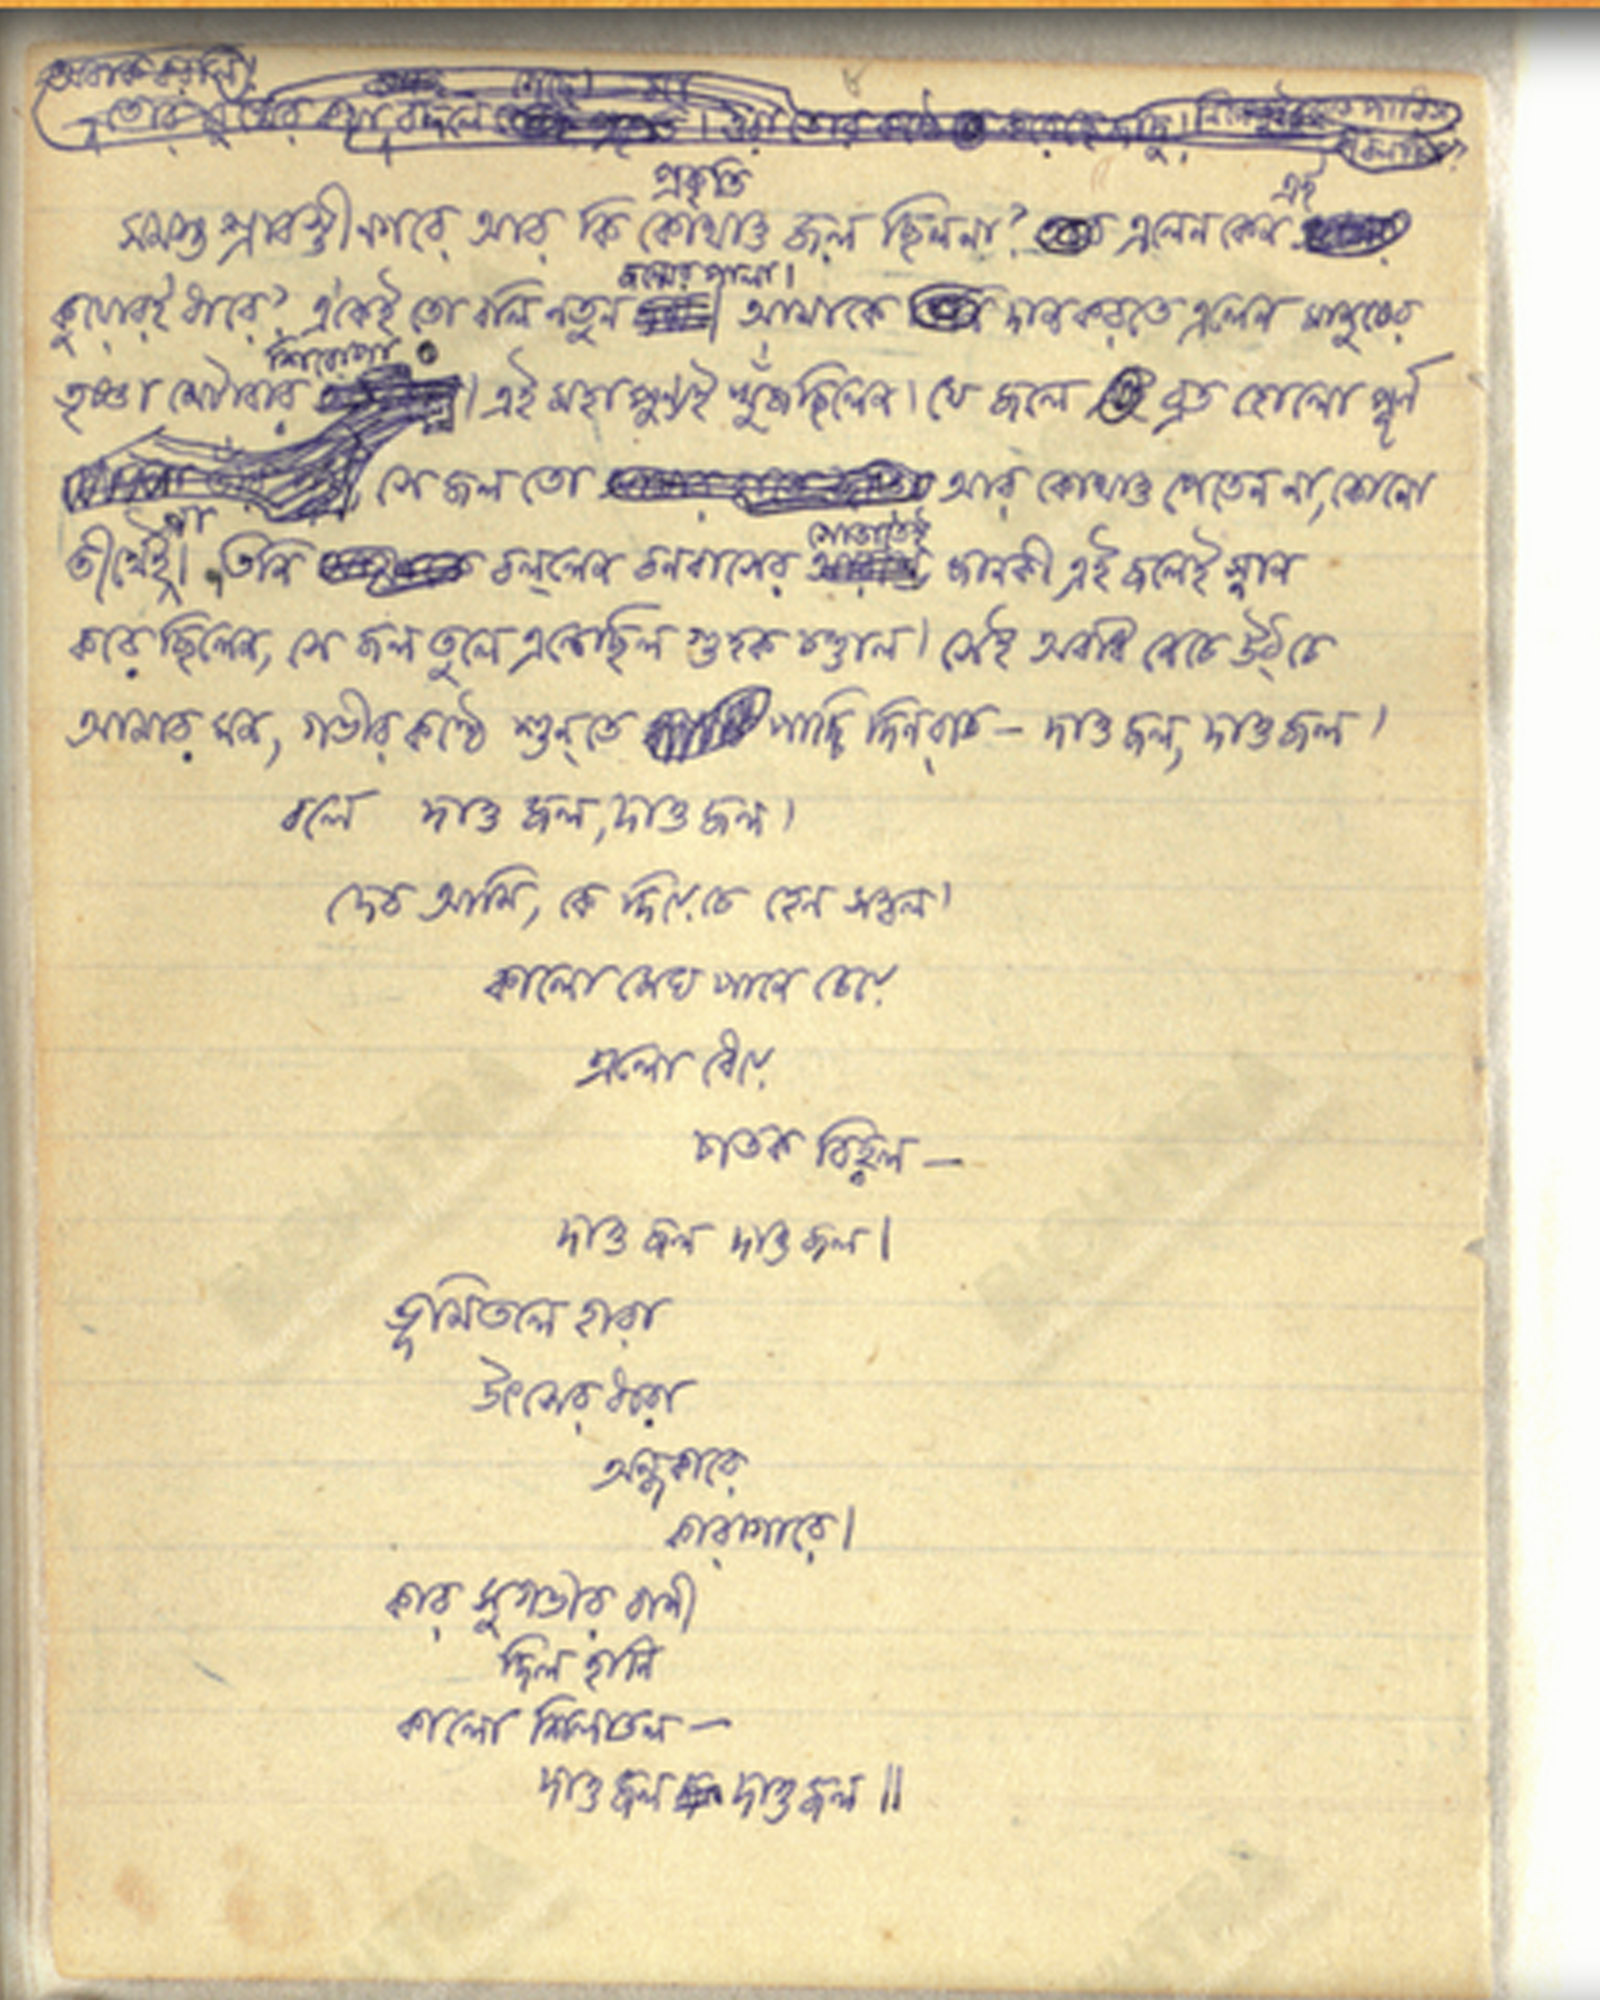 অবাক করলি!
গেছে। মা
তোর মুখের কথা বদলে
প্রকৃতি
এই
সমস্ত শ্রাবস্তী নগরে আর কি কোথাও জল ছিল না? এলেন কেন
জন্মের পালা।
কুয়োরই ধারে? একেই তো বলি নতুন আমাকে দান করতে এলেন মানুষের
শিরোপা
তৃষ্ণা মেটাবার । এই মহাপুণ্যই খুঁজছিলেন। যে জলে ব্রত হোলো পূর্ণ
সে জল তো আর কোথাও পেতেন না, কোনো
না
তীর্থেই। তিনি বল্‌লেন বনবাসের জানকী এই জলেই স্নান
করেছিলেন, সে জল তুলে এনেছিল গুহক চণ্ডাল। সেই অবধি নেচে উঠ্‌চে
আমার মন, গভীর কণ্ঠে শুন্‌তে পাচ্ছি দিনরাত — দাও জল, দাও জল।
বলে দাও জল, দাও জল।
দেব আমি, কে দিয়েচে হেন সম্বল।
কালো মেঘ পানে চেয়ে
এলো ধেয়ে
চাতক বিহ্বল —
দাও জল দাও জল।
ভূমিতলে হারা
উৎসের ধারা
অন্ধকারে
কারাগারে।
কার সুগভীর বাণী
দিল হানি
কালো শিলাতল —
দাও জল দাও জল॥